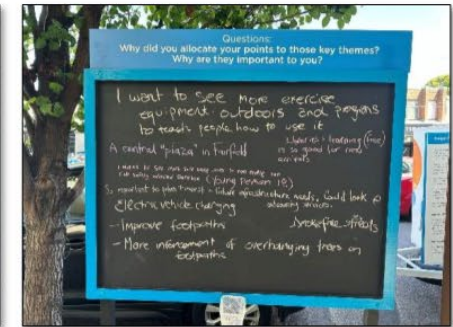 Questions:
Why did you allocate your points to those key themes?
Why are they important to you?
I want to see more exercise
equipment outdoors and
to teach people how to use it
A central "plaza" in Fairfield
Libraries + learning (free)
is so good for new
(Young Person 18)
So important to plan + invest in future infrastructure needs. Could look @
Electric vehicle charging
- Improve footpaths
Smokefree streets
- More inforcement of overhanging trees on
footpaths